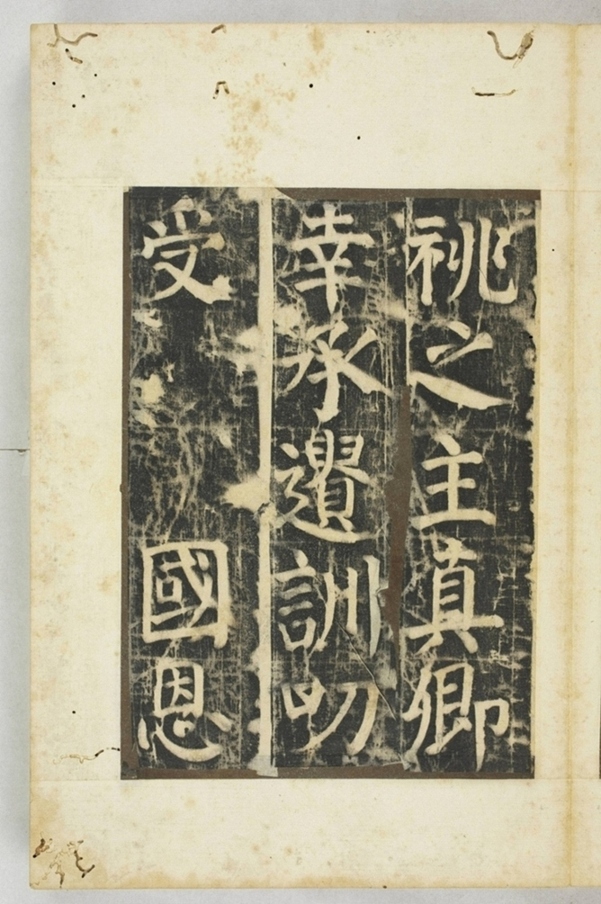 祧之主真卿
幸承遺訓叨
受　國恩